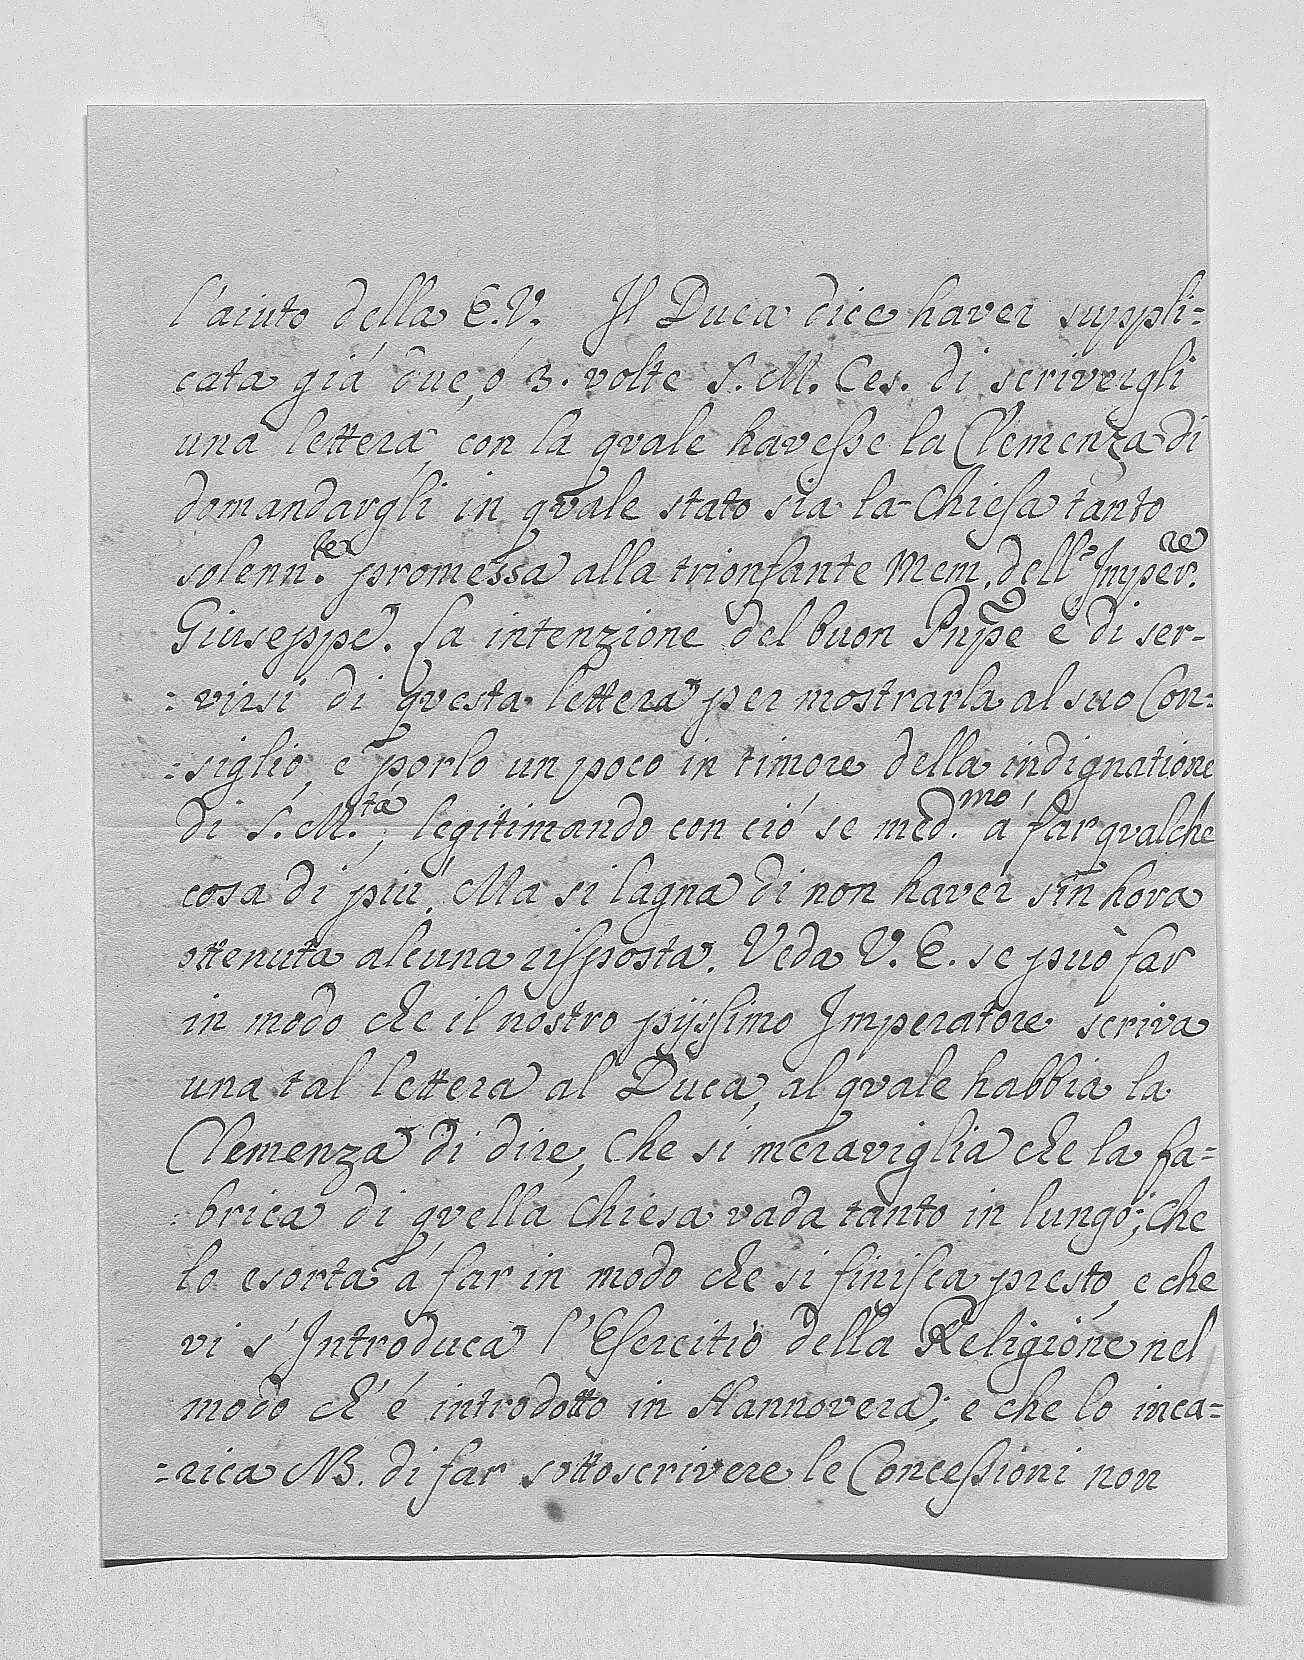 l'aiuto della E.V. Il Duca dice haver suppli=
cata giá due, ó 3. volte S. M. Ces. di scrivergli
una lettera, con la quale havesse la Clemenza di
domandargli in quale stato sia la Chiesa tanto
solenn.te promessa alla trionfante Mem. dell' Imper.re
Giuseppe. La intenzione del buon Pnpe é di ser-
=virsi di questa lettera per mostrarla al suo Con=
=siglio, e porlo un poco in timore della indignatione
di S. M.tá, legitimando con ció se med.mo á far qualche
cosa di piú. Ma si lagna di non haver sin hora
ottenuta alcuna risposta. Veda V. E. se può far
in modo che il nostro pijssimo Imperatore scriva
una tal lettera al Duca, al quale habbia la
Clemenza di dire, Che si meraviglia che la fa=
=brica di quella Chiesa vada tanto in lungo; Che
lo esorta á far in modo che si finisca presto, e che
vi s'Introduca l'Esercitio della Religione nel
modo ch' é introdotto in Hannovera; e che lo inca=
=rica NB. di far sottoscrivere le Concessioni non